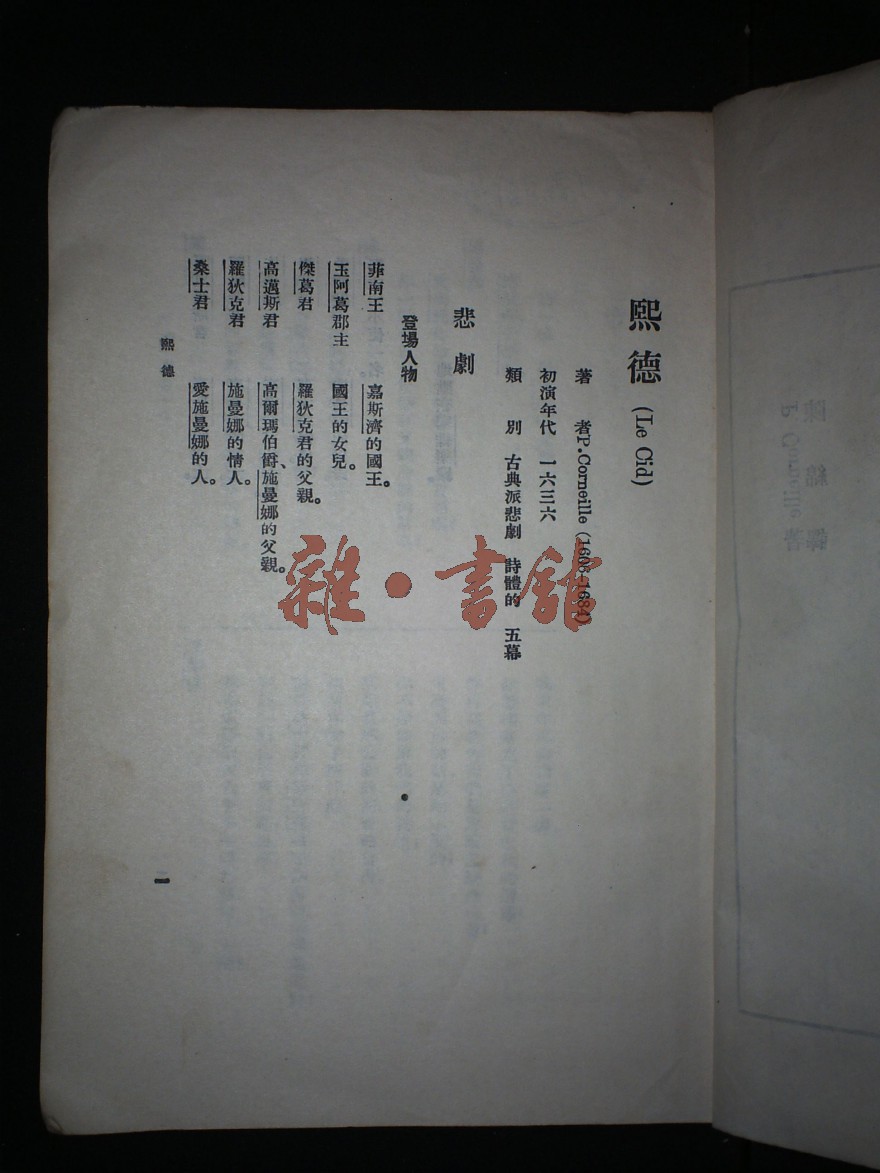 熙德 (Le Cid)
著 者 P.Corneille (1606-1684)
初演年代 一六三六
類 別 古典派悲劇 詩體的 五幕
悲劇
登場人物
菲南王 嘉斯濟的國王。
玉阿葛郡主 國王的女兒。
傑葛君 羅狄克君的父親。
高邁斯君 高爾瑪伯爵、施曼娜的父親。
羅狄克君 施曼娜的情人。
桑士君 愛施曼娜的人。
熙德
一
雜·書館